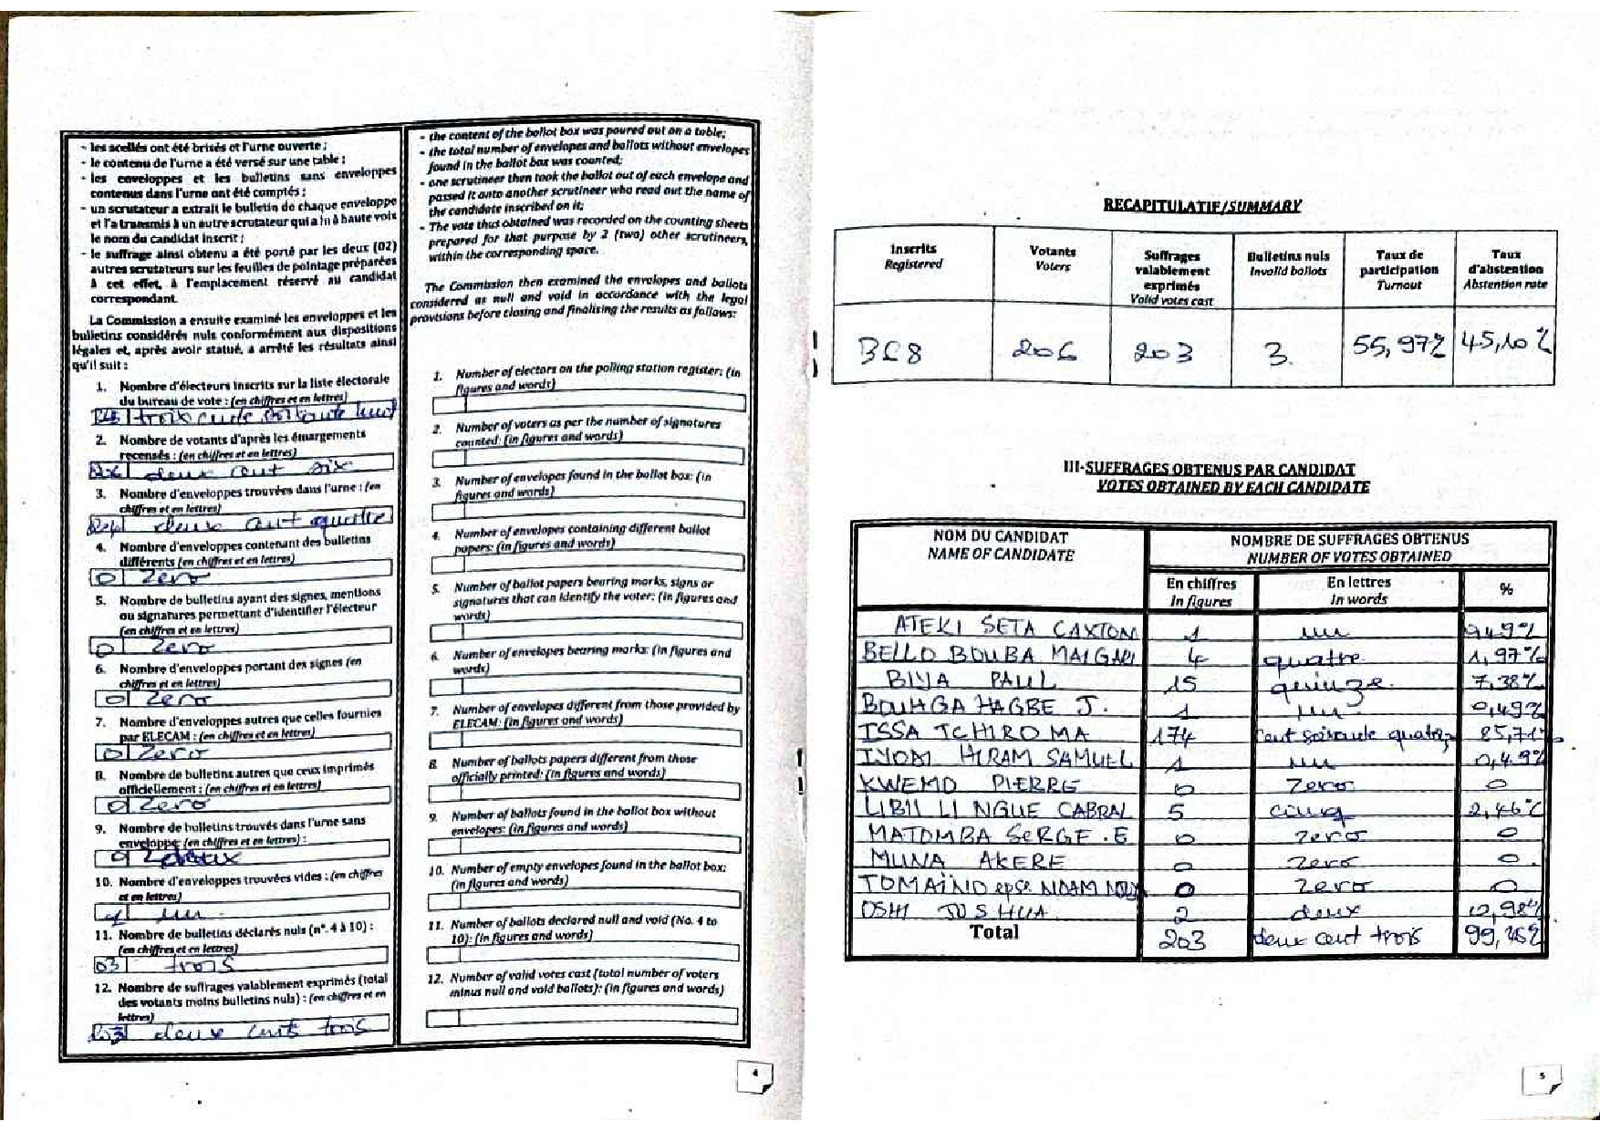 - les scellés ont été brisés et l'urne ouverte ;
- le contenu de l'urne a été versé sur une table ;
- les enveloppes et les bulletins sans enveloppes
contenus dans l'urne ont été comptés ;
- un scrutateur a extrait le bulletin de chaque enveloppe
et l'a transmis à un autre scrutateur qui a lu à haute voix
le nom du candidat inscrit ;
- le suffrage ainsi obtenu a été porté par les deux (02)
autres scrutateurs sur les feuilles de pointage préparées
à cet effet, à l'emplacement réservé au candidat
correspondant.
La Commission a ensuite examiné les enveloppes et les
bulletins considérés nuls conformément aux dispositions
légales et, après avoir statué, a arrêté les résultats ainsi
qu'il suit :
1. Nombre d'électeurs inscrits sur la liste électorale
du bureau de vote : (en chiffres et en lettres)
2. Nombre de votants d'après les émargements
recensés : (en chiffres et en lettres)
deux cent six
3. Nombre d'enveloppes trouvées dans l'urne : (en
chiffres et en lettres)
deux cent quatre
4. Nombre d'enveloppes contenant des bulletins
différents (en chiffres et en lettres)
0 Zero
5. Nombre de bulletins ayant des signes, mentions
ou signatures permettant d'identifier l'électeur
(en chiffres et en lettres)
0 Zero
6. Nombre d'enveloppes portant des signes (en
chiffres et en lettres)
0 Zero
7. Nombre d'enveloppes autres que celles fournies
par ELECAM : (en chiffres et en lettres)
0 Zero
8. Nombre de bulletins autres que ceux imprimés
officiellement : (en chiffres et en lettres)
0 Zero
9. Nombre de bulletins trouvés dans l'urne sans
enveloppe (en chiffres et en lettres) :
10. Nombre d'enveloppes trouvées vides : (en chiffres
et en lettres)
un
11. Nombre de bulletins déclarés nuls (n°. 4 à 10) :
(en chiffres et en lettres)
03 trois
12. Nombre de suffrages valablement exprimés (total
des votants moins bulletins nuls) : (en chiffres et en
lettres)
203 deux cents trois
- the content of the ballot box was poured out on a table;
- the total number of envelopes and ballots without envelopes
found in the ballot box was counted;
- one scrutineer then took the ballot out of each envelope and
passed it onto another scrutineer who read out the name of
the candidate inscribed on it;
- The vote thus obtained was recorded on the counting sheets
prepared for that purpose by 2 (two) other scrutineers,
within the corresponding space.
The Commission then examined the envelopes and ballots
considered as null and void in accordance with the legal
provisions before closing and finalising the results as follows:
1. Number of electors on the polling station register: (in
figures and words)
2. Number of voters as per the number of signatures
counted: (in figures and words)
3. Number of envelopes found in the ballot box: (in
figures and words)
4. Number of envelopes containing different ballot
papers: (in figures and words)
5. Number of ballot papers bearing marks, signs or
signatures that can identify the voter: (in figures and
words)
6. Number of envelopes bearing marks: (in figures and
words)
7. Number of envelopes different from those provided by
ELECAM: (in figures and words)
8. Number of ballots papers different from those
officially printed: (in figures and words)
9. Number of ballots found in the ballot box without
envelopes: (in figures and words)
10. Number of empty envelopes found in the ballot box:
(in figures and words)
11. Number of ballots declared null and void (No. 4 to
10): (in figures and words)
12. Number of valid votes cast (total number of voters
minus null and void ballots): (in figures and words)
4
RECAPITULATIF/SUMMARY
Inscrits Registered Votants Voters Suffrages valablement exprimés Valid votes cast Bulletins nuls Invalid ballots Taux de participation Turnout Taux d'abstention Abstention rate
368 206 203 3. 55,97% 45,10%
III-SUFFRAGES OBTENUS PAR CANDIDAT
VOTES OBTAINED BY EACH CANDIDATE
NOM DU CANDIDAT NOMBRE DE SUFFRAGES OBTENUS
NAME OF CANDIDATE NUMBER OF VOTES OBTAINED
En chiffres En lettres %
In figures In words
ATEKI SETA CAXTON 1 un 0,49%
BELLO BOUBA MAIGARI 4 quatre 1,97%
BIYA PAUL 15 quinze 7,38%
BOUHGA HAGBE J. 1 un 0,49%
ISSA TCHIROMA 174 85,71%
IYODI HIRAM SAMUEL 1 un 0,49%
KWEMO PIERRE 0 Zero 0
LIBII LI NGUE CABRAL 5 cinq 2,46%
MATOMBA SERGE .E 0 zero 0
MUNA AKERE 0 Zero 0.
TOMAÏNO epse NDAM 0 Zero 0
OSHI JOSHUA 2 deux
Total 203 deux cent trois
5